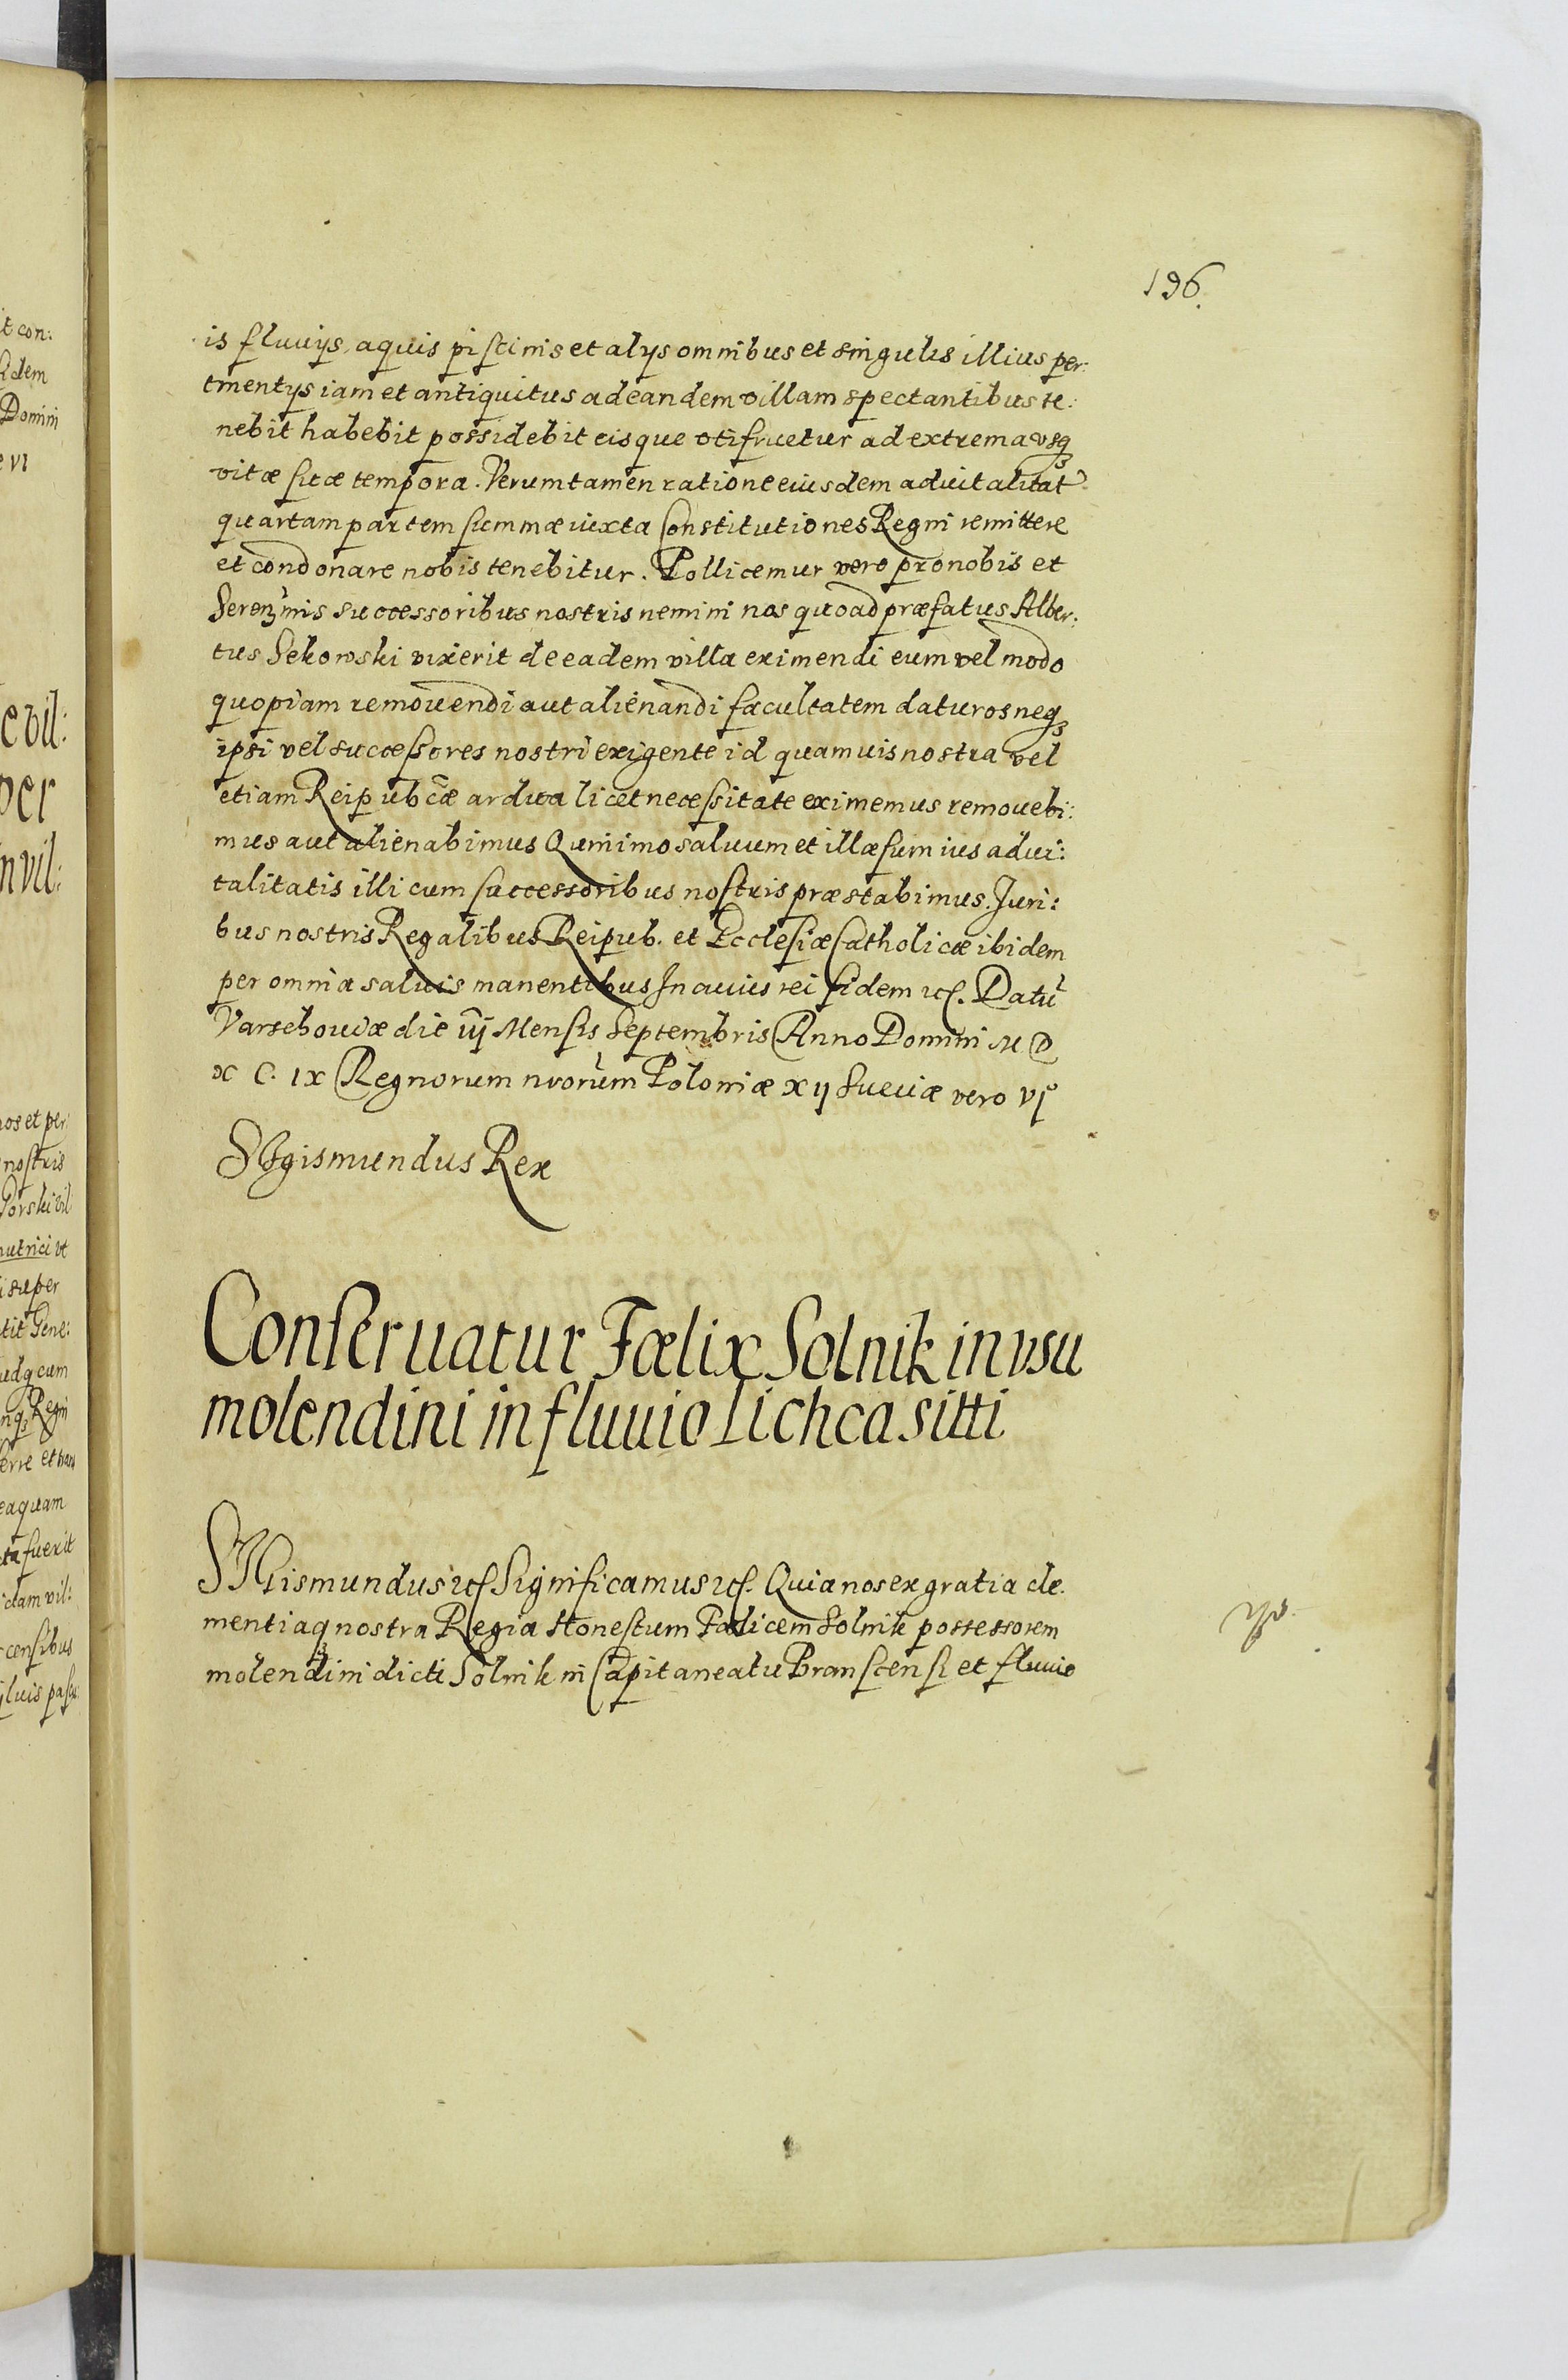 196.
is fluuijs, aquis piscinis et alijs omnibus et singulis illius per:
tinentijs iam et antiquitus ad eandem villam spectantibus te:
nebit habebit possidebit eisque vtifruetur ad extrema vsq3
vitæ suæ tempora. Verumtamen ratione eiusdem aduitalitat
quartam partem summæ iuxta Constitutiones Regni remittere
et condonare nobis tenebitur. Pollicemur vero pro nobis et
Seren̄mis successoribus nostris nemini nos quoad præfatus Alber:
tus Sekowski vixerit de eadem villa eximendi eum vel modo
quopiam remouendi aut alienandi facultatem daturos neq3
ipsi vel successores nostri exigente id quamuis nostra vel
etiam Reipubcæ ardua licet necessitate eximemus remouebi:
mus aut alienabimus Quinimo saluum et illæsum ius adui:
talitatis illi cum successoribus nostris præstabimus. Juri:
bus nostris Regalibus Reipub. et Ecclesiæ Catholicæ ibidem
per omnia saluis manentibus In cuius rei fidem etc. Datū
Varschouiæ die iij Mensis Septembris Anno Domini M D
X C. IX Regnorum nrorum Poloniæ xij Sueciæ vero vj°
SIgismundus Rex
Conseruatur Fœlix Solnik in vsu
molendini in fluuio Lichca sitti
SIgismundus etc Significamus etc. Quia nos ex gratia cle.
mentiaq3 nostra Regia Honestum Fælicem Solnik possessorem
molendini dicti Solnik in Capitaneatu Branscensi et fluuio
it con:
fidem
Domini
e vi
e vil:
per
in vil:
nos et per
nostris
super
cum
Regni
erre et
eaquam
ta fuerit
idam vil:
censibus